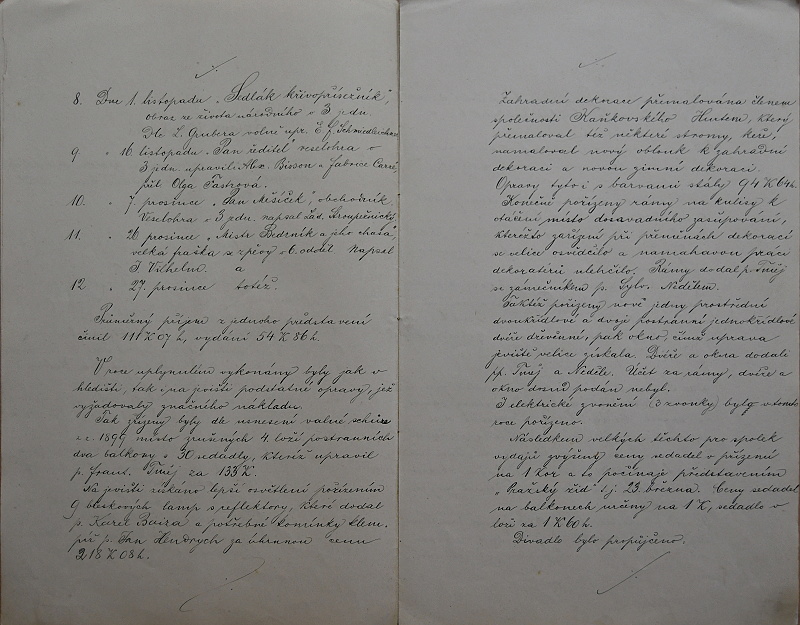 8. Dne 1. listopadu „Sedlák křivopřísežník",
obraz ze života národního o 3 jedn.
Dle L. Grubera volně upr.
9 „ 16 listopadu „Pan ředitel" veselohra o
3 jedn. upravili Alex. Bisson a Fabrice Carré,
přel. Olga Fastrová.
10. „ 7. prosince „Pan Měšíček" obchodník.
Veselohra o 3 jedn. napsal Lad. Stroupežnický
11. „ 26 prosince „Mistr Bedrník a jeho chasa"
velká fraška se zpěvy o 6. odděl. Napsal
J Vilhelm. a
12 „ 27. prosince totéž.
Průměrný příjem z jednoho představení
činil 111 K 07 h, vydání 54 K 86 h.
V roce uplynulém vykonány byly jak v
hledišti, tak i na jevišti podstatné opravy, jež
vyžadovaly značného nákladu.
Tak zřízeny byly dle usnesení valné schůze
z r. 1899 místo zrušených 4. loží postranních
dva balkony o 30 sedadly, kteréž upravil
p. Frant. Tměj za 133 K.
Na jevišti získáno lepší osvětlení pořízením
9 bleskových lamp s reflektory, které dodal
p. Karel Baira a potřebné komínky klem-
píř p. Jan Hendrych za úhrnnou cenu
218 K 08 h.
Zahradní dekorace přemalována členem
společnosti Kaňkovského Hintem, který
přemaloval též některé stromy, keře,
namaloval nový oblouk k zahradní
dekoraci a novou zimní dekoraci.
Opravy tyto i s barvami stály 94 K 64 h.
Konečně pořízeny rámy na kulisy k
otáčení místo dosavadního zasupování,
kteréžto zařízení při přeměnách dekorací
se velice osvědčilo a namahavou práci
dekoratérů ulehčilo. Rámy dodal p. Tměj
se zámečníkem p. Sylv. Nedělem.
Taktéž pořízeny nově jedny prostřední
dvoukřídlové a dvoje postranní jednokřídlové
dvéře dřevěné, pak okno, čímž úprava
jeviště velice získala. Dvéře a okna dodali
pp. Tměj a Neděle. Účet za rámy, dvéře a
okno dosud podán nebyl.
I elektrické zvonění (3 zvonky) bylo v tomto
roce pořízeno.
Následkem velkých těchto pro spolek
vydajů zvýšeny ceny sedadel v přízemí
na 1 Kor a to počínaje představením
„Pražský žid" t. j. 23. března. Ceny sedadel
na balkonech určeny na 1 K, sedadlo v
loži za 1 K 60 h.
Divadlo bylo propůjčeno.